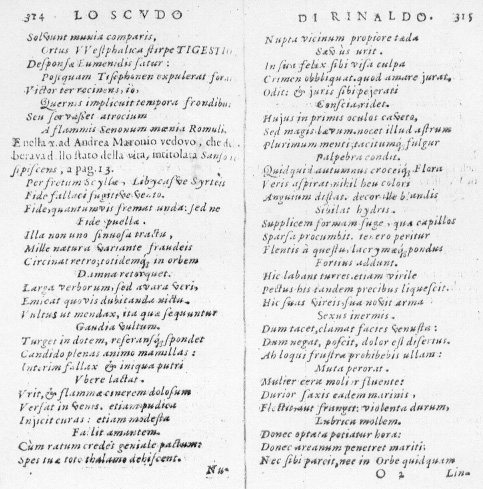 314 LO SCVDO
Solvunt munia comparis,
Ortus VVestphalica stirpe TIGESTIO
Desponsa Eumenidis satur:
Postquam Tisephonen expulerat fora.
Victor ter recinens, io,
Quernis implicuit tempora frondibus
Seu servasset atrocium
A flammis Senonum mœnia Romuli.
E nella x. ad Andrea Maronio vedovo, che de
berava dello stato della vita, intitolata Sanson
sipiscens, a pag. 13.
Per fretum Scyllæ, Libycasve Syrteis
Fide fallaci fugitive vento.
Fide, quantumvis fremat unda: sed ne
Fide puellæ.
Illa non uno sinuosa tractu,
Mille natura variante fraudeis
Circinat retro, totidemq; in orbem
Damna retorquet.
Larga verborum, sed avara veri,
Emicat quovis dubitanda nictu.
Vultus ut mendax, ita quæ sequuntur
Gaudia vultum.
Turget in dotem, referansq; spondet
Candido plenas animo mamillas:
Interim fallax & iniqua putri
Vbere lactat.
Vrit, & flammæ cinerem dolosum
Versat in venis. etiam pudica
Injicit curas: etiam modesta
Fallit amantem.
Cùm ratum credes geniale pactum:
Spes tuæ toto thalamo dehiscent.
Nu-
DI RINALDO. 315
Nupta vicinum propiore tæda
Sævius urit.
In sua felix sibi visa culpa
Crimen obbliquat, quod amare jurat,
Odit: & juris sibi pejerati
Conscia, ridet.
Hujus in primis oculos caveto,
Sed magis lævum. nocet illud astrum
Plurimum menti, tacitumq; fulgur
Palpebra condit.
Quidquid autumnus croceiq; Flora
Veris aspirat nihil heu colori
Anguium distat. decor ille blandis
Sibilat hydris.
Supplicem formam fuge, quæ capillos
Sparsa procumbit. tenero peritur
Flentis à questu, lacrymæq; pondus
Fortius addunt.
Hic labant turres, etiam virile
Pectus his tandem precibus liquescit.
Hic suas vireis, sua novit arma
Sexus inermis.
Dum tacet, clamat facies venusta:
Dum negat, poscit, dolor est disertus.
Ah loqui frustra prohibebis ullam:
Muta perorat.
Mulier cera molir fluente:
Durior saxis eadem marinis,
Flectit aut franget: violenta durum,
Lubrica mollem.
Donec optata potiatur hora:
Donec arcanum penetret mariti:
Nec sibi parcit, nec in Orbe quidquam
O 2 Lin-